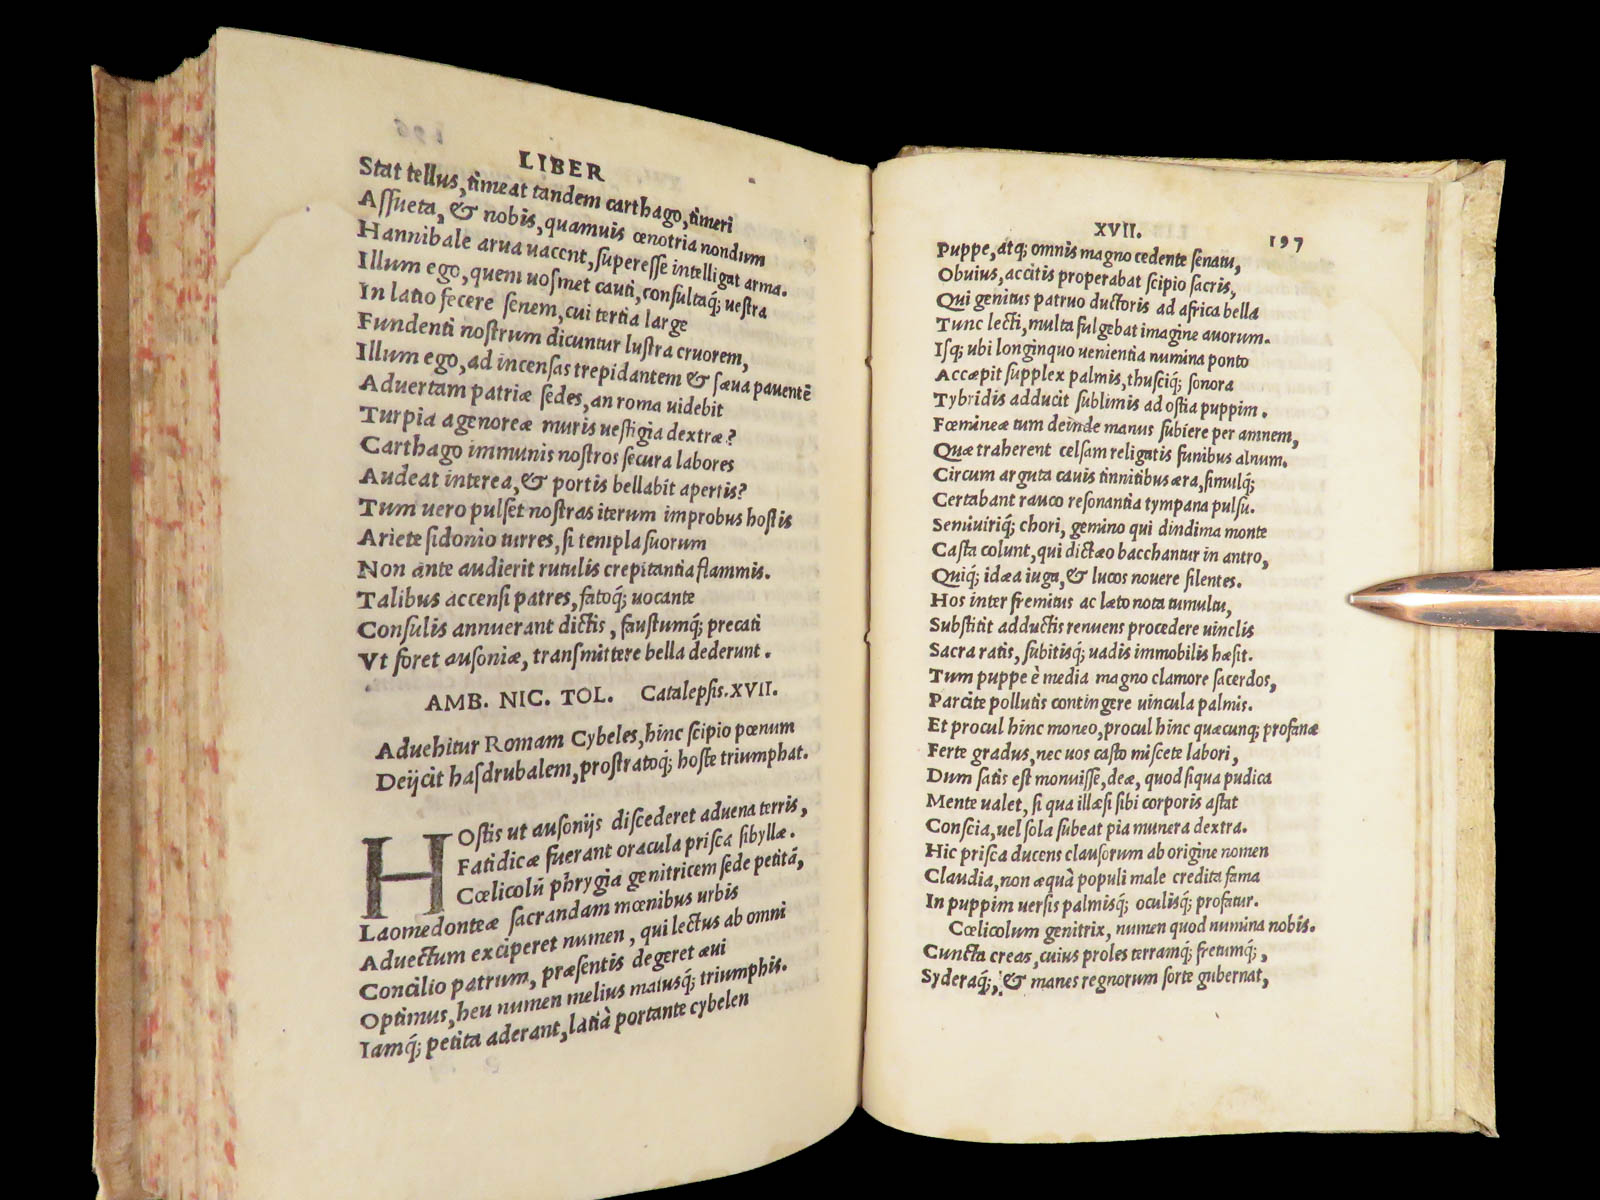 LIBER
Stat tellus, timeat tandem carthago, timeri
Assueta, & nobis, quamuis œnotria nondum
Hannibale arua uacent, superesse intelligat arma.
Illum ego, quem uosmet cauti, consultaq́; uestra
In latio fecere senem, cui tertia large
Fundenti nostrum dicuntur lustra cruorem,
Illum ego, ad incensas trepidantem & sæua pauentē
Aduertam patriæ sedes, an roma uidebit
Turpia agenoreæ muris uestigia dextræ?
Carthago immunis nostros secura labores
Audeat interea, & portis bellabit apertis?
Tum uero pulset nostras iterum improbus hostis
Ariete sidonio turres, si templa suorum
Non ante audierit rutulis crepitantia flammis.
Talibus accensi patres, fatoq́; uocante
Consulis annuerant dictis, faustumq́; precati
Vt foret ausoniæ, transmittere bella dederunt.
AMB. NIC. TOL. Catalepsis. XVII.
Aduehitur Romam Cybeles, hinc scipio pœnum
Deijcit hasdrubalem, prostratoq́; hoste triumphat.
HOstis ut ausonijs discederet aduena terris,
Fatidicæ fuerant oracula prisca sibyllæ.
Cœlicolū phrygia genitricem sede petitā,
Laomedonteæ sacrandam mœnibus urbis
Aduectum exciperet numen, qui lectus ab omni
Concilio patrum, præsentis degeret æui
Optimus, heu numen melius maiusq́; triumphis.
Iamq́; petita aderant, latià portante cybelen
XVII. 197
Puppe, atq; omnis magno cedente senatu,
Obuius, accitis properabat scipio sacris,
Qui genitus patruo ductoris ad africa bella
Tunc lecti, multa fulgebat imagine auorum.
Isq; ubi longinquo uenientia numina ponto
Accæpit supplex palmis, thusciq́; sonora
Tybridis adducit sublimis ad ostia puppim.
Fœmineæ tum deinde manus subiere per amnem,
Quæ traherent celsam religatis funibus alnum.
Circum arguta cauis tinnitibus æra, simulq́;
Certabant rauco resonantia tympana pulsu.
Semiuiriq́; chori, gemino qui dindima monte
Casta colunt, qui dictæo bacchantur in antro,
Quiq́; idæa iuga, & lucos nouere silentes.
Hos inter fremitus ac læto nota tumultu,
Substitit adductis renuens procedere uinclis
Sacra ratis, subitisq́; uadis immobilis hæsit.
Tum puppe è media magno clamore sacerdos,
Parcite pollutis contingere uincula palmis.
Et procul hinc moneo, procul hinc quæcunq; profanæ
Ferte gradus, nec uos casto miscete labori,
Dum satis est monuisse, deæ, quod siqua pudica
Mente ualet, si qua illæsi sibi corporis astat
Conscia, uel sola subeat pia munera dextra.
Hic prisca ducens clausorum ab origine nomen
Claudia, non æquà populi male credita fama
In puppim uersis palmisq́; oculisq́; profatur.
Cœlicolum genitrix, numen quod numina nobis.
Cuncta creas, cuius proles terramq́; fretumq́;,
Syderaq́;, & manes regnorum sorte gubernat,